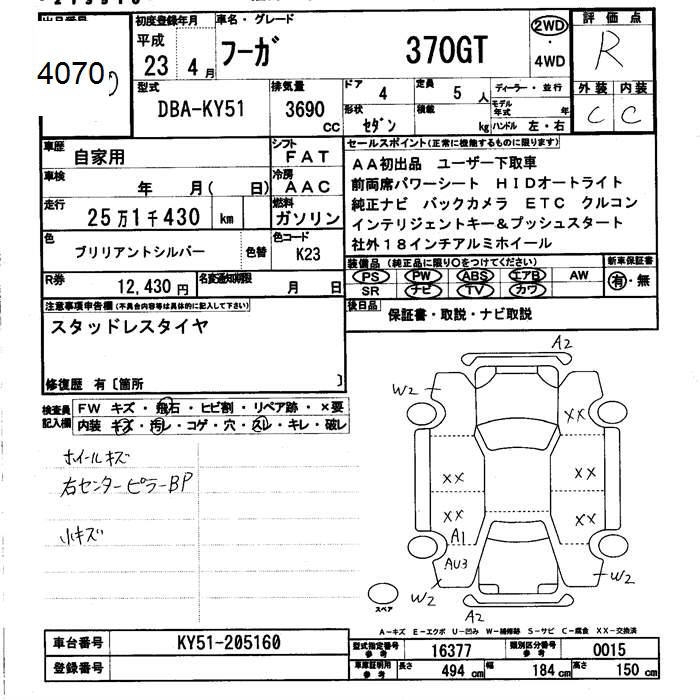 初度登録年月 車名・グレード 評価点
平成 23 年 4 月 フーガ 370GT 2WD ・ 4WD R
4070
型式 DBA-KY51 排気量 3690 CC ドア 4 定員 5 人 ディーラー・並行 外装 C 内装 C
形状 セダン 積載 kg モデル年式 年 ハンドル 左・右
車歴 自家用 シフト FAT
車検 年 月( 日) 冷房 AAC
走行 25万1千430 km 燃料 ガソリン
色 ブリリアントシルバー 色替 色コード K23
R券 12,430円 名変通知期限 月 日
セールスポイント(正常に機能するものに限ります)
AA初出品 ユーザー下取車
前両席パワーシート HIDオートライト
純正ナビ バックカメラ ETC クルコン
インテリジェントキー&プッシュスタート
社外18インチアルミホイール
装備品 (純正品に限り○をつけてください) 新車保証書
PS PW ABS エアB AW 有・無
SR ナビ TV カワ
後日品 保証書・取説・ナビ取説
注意事項申告欄(不具合内容等は具体的に記入して下さい)
スタッドレスタイヤ
修復歴 有〔箇所 〕
検査員記入欄 FW キズ・飛石・ヒビ割・リペア跡・×要
内装 キズ・汚レ・コゲ・穴・スレ・キレ・破レ
ホイールキズ
右センターピラーBP
小キズ
A2
W2
XX
XX XX
XX XX
A1
AU3
W2 W2
A2
スペア
A-キズ E-エクボ U-凹み W-補修跡 S-サビ C-腐食 XX-交換済
車台番号 KY51-205160
登録番号
型式指定番号 参考 16377 類別区分番号 参考 0015
車庫証明用 参考 長さ 494 cm 幅 184 cm 高さ 150 cm